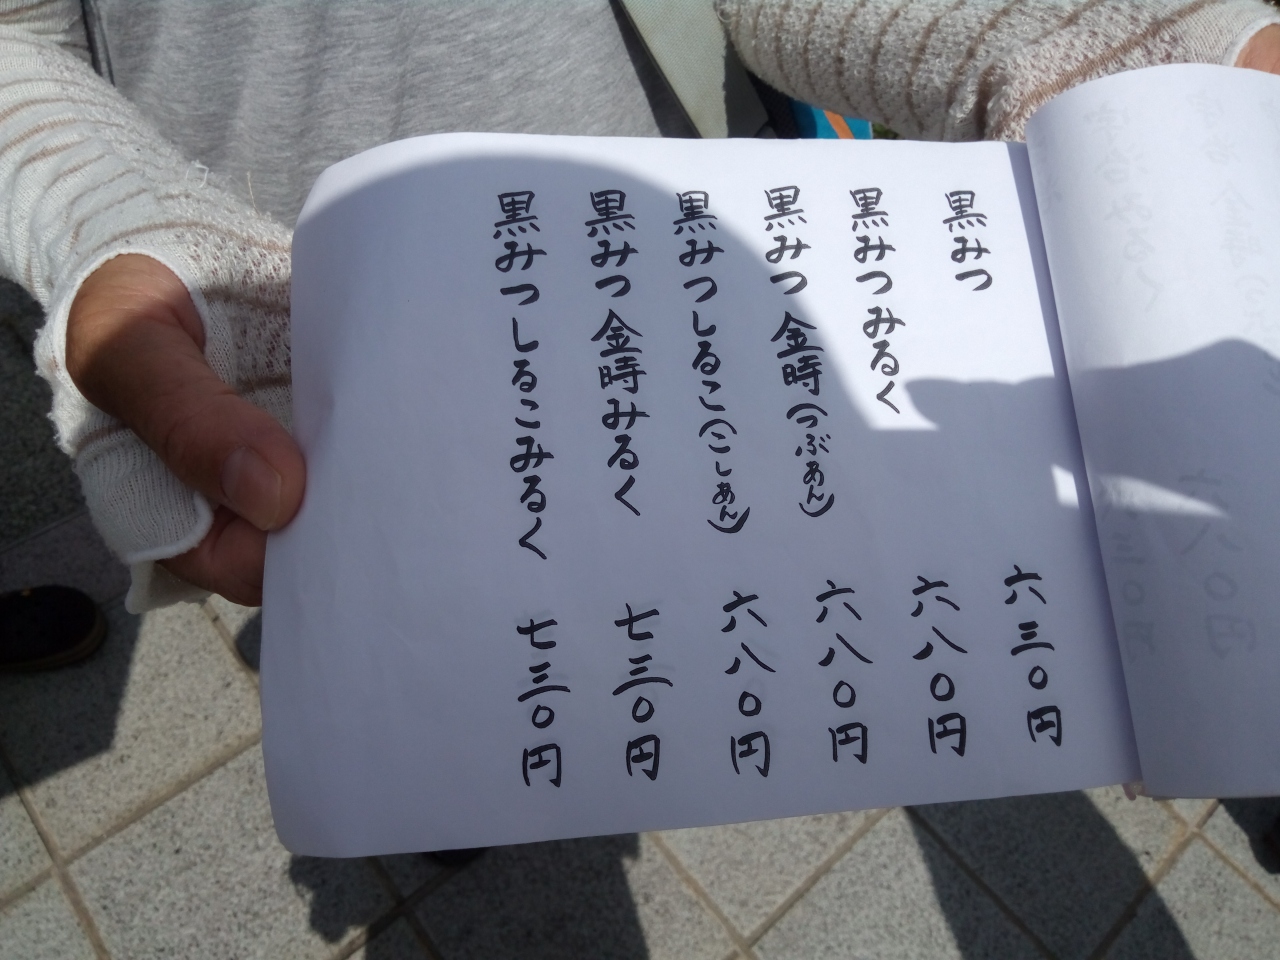 黒みつ 六三〇円
黒みつみるく 六八〇円
黒みつ金時(つぶあん) 六八〇円
黒みつしるこ(こしあん) 六八〇円
黒みつ金時みるく 七三〇円
黒みつしるこみるく 七三〇円